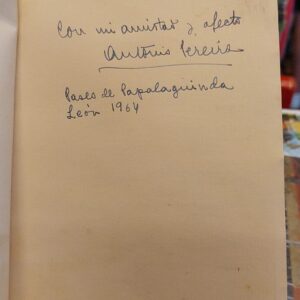 Con mi amistad y afecto
Antonio Pereira
Paseo de Papalaguinda
León 1964